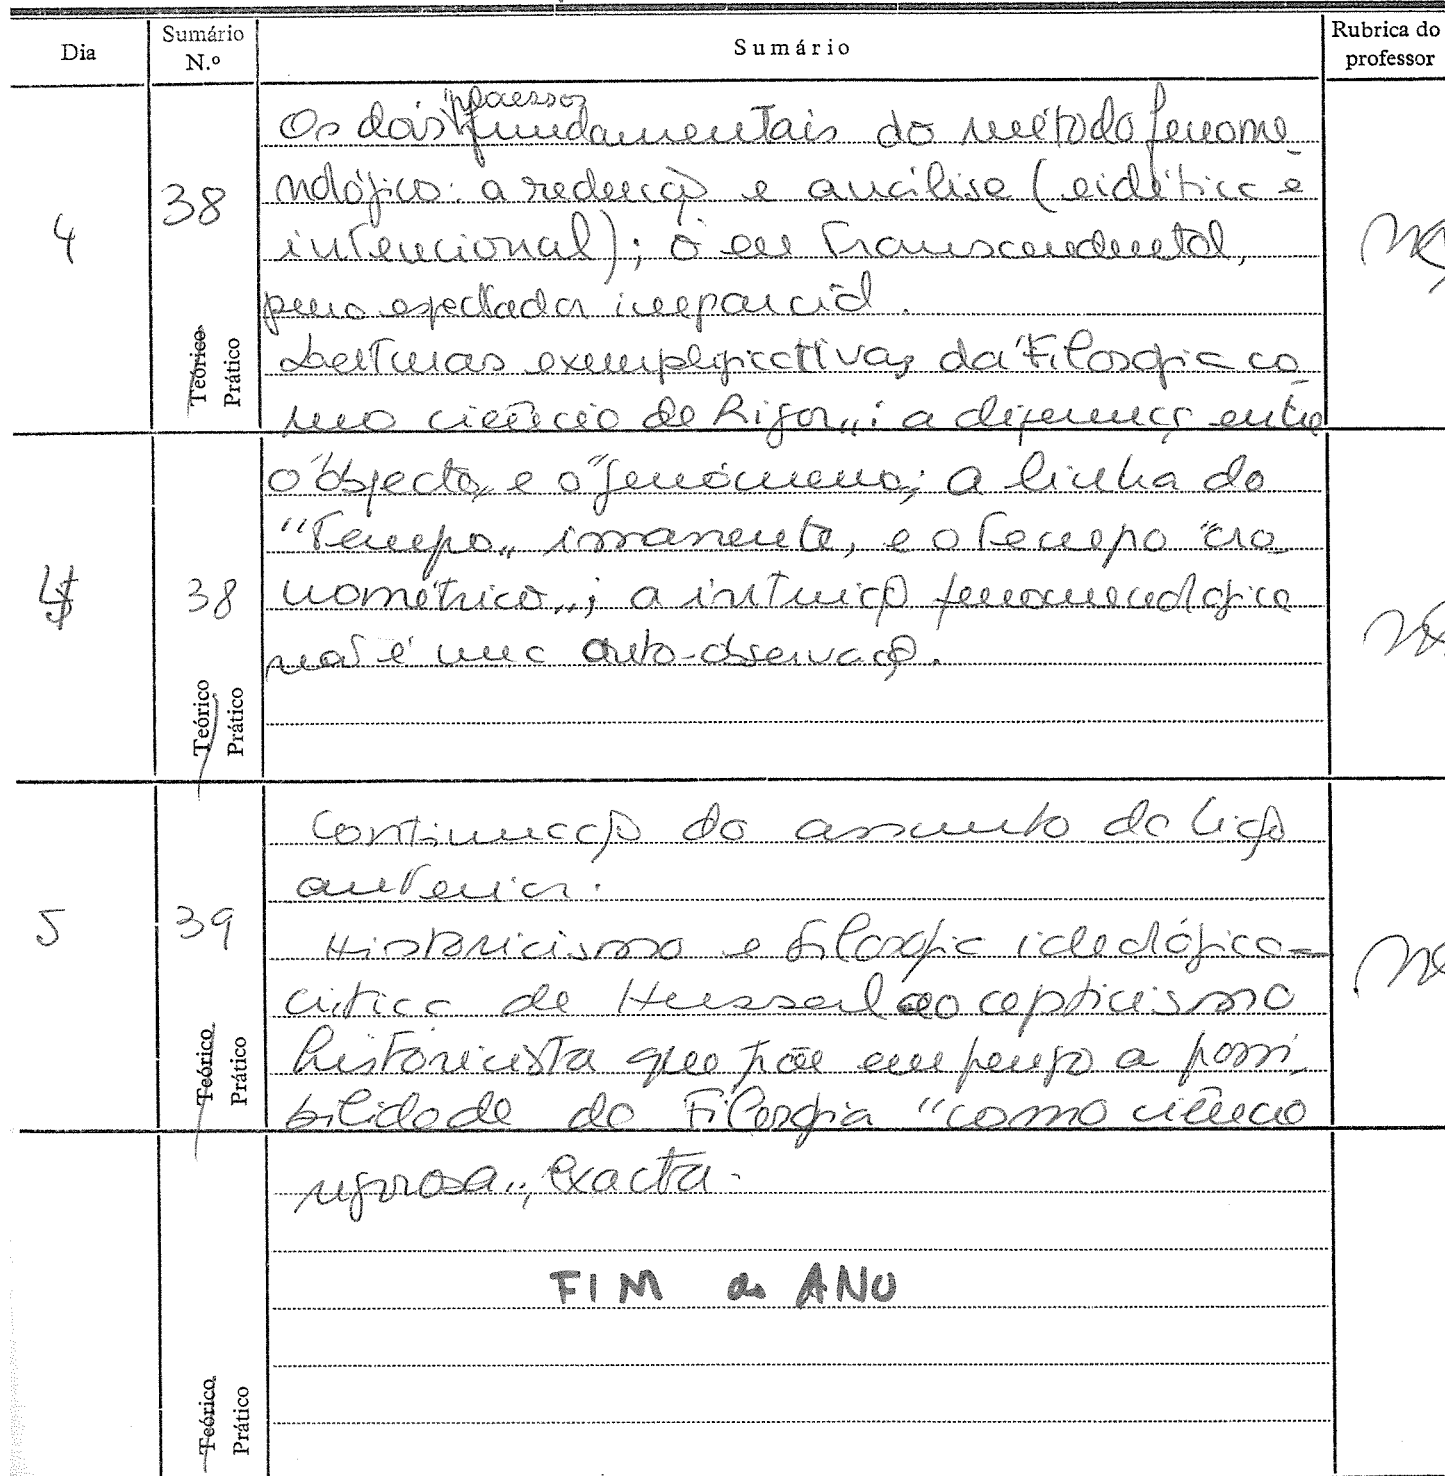 Dia
Sumário N.º
Sumário
Rubrica do professor
4
38
Teórico
Prático
Os dois processos fundamentais do método fenome
nológico: a redução e análise (eidética e
intencional); o eu transcendental,
puro espectador imparcial.
Leituras exemplificativas da "Filosofia co
mo ciência de Rigor": a diferença entre
4
38
Teórico
Prático
o "objecto" e o "fenómeno; a linha do
"Tempo" imanente, e o Tempo "cro
nométrico"; a intuição fenomenológica
não é uma auto-observação.
5
39
Teórico
Prático
Continuação do assunto da lição
anterior.
Historicismo e filosofia ideológica-
crítica de Husserl ao cepticismo
historicista que põe em perigo a possi
bilidade da Filosofia "como ciência
Teórico
Prático
rigorosa", exacta.
FIM do ANO